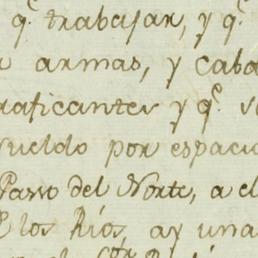 q.e trabajar, y q.e
armas, y caba
raficantes y q.e s
sueldo por espacio
Passo del Norte, a el
los Ríos, ay una